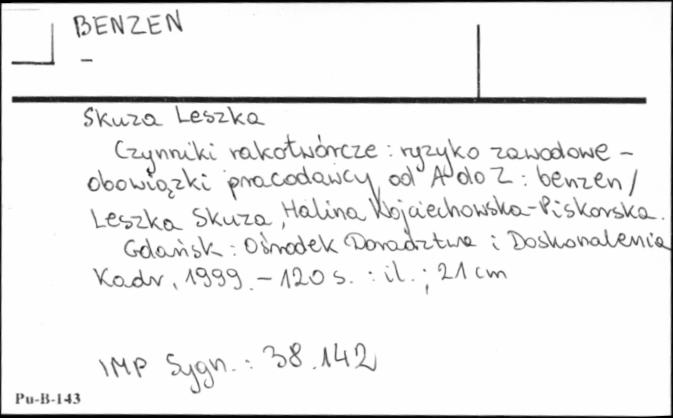 BENZEN
–
Skuza Leszka
Czynniki rakotwórcze : ryzyko zawodowe –
obowiązki pracodawcy od A do Z : benzen /
Leszka Skuza, Halina Wojciechowska-Piskorska.
Gdańsk : Ośrodek Doradztwa i Doskonalenia
Kadr, 1999. – 120 s. : il. ; 21 cm
IMP Sygn. : 38.142
Pu-B-143